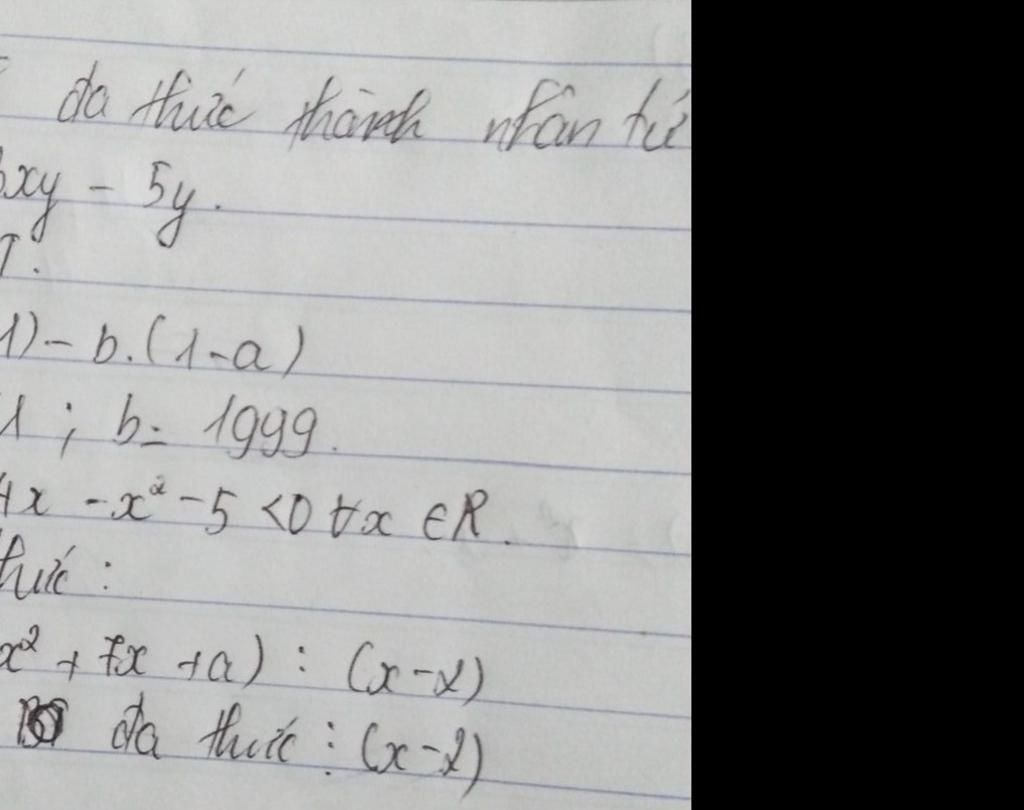 đa thức thành nhân tử
xy - 5y.
T.
1) - b.(1-a)
1 ; b = 1999.
4x - x² - 5 <0 ∀x ∈R.
thức :
x² + 7x + a) : (x-2)
đa thức : (x-2)